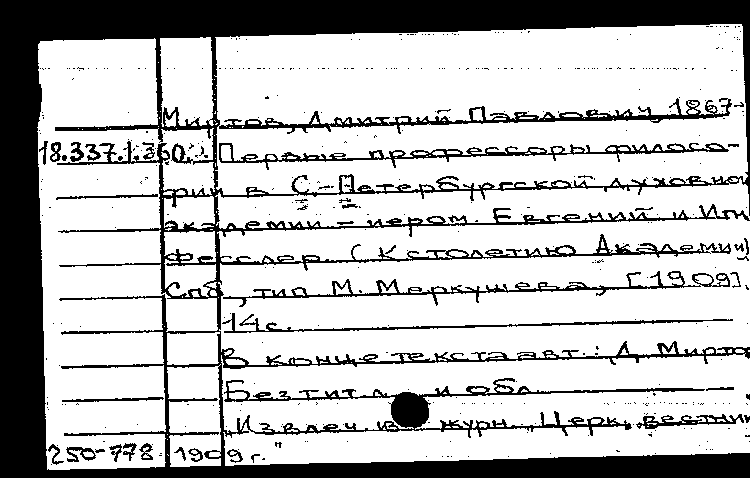 Миртов, Дмитрий Павлович, 1867-
18.337.1.360. Первые профессоры филосо-
фии в С.-Петербургской духовной
академии - иером. Евгений и Игн
Фесслер. (К столетию Академии)
Спб, тип М. Меркушева, [1909].
14с.
В конце текста авт.: Д. Мирто
Без тит. л. и обл.
"Извлеч. из журн. "Церк. вестни
250-778 1909 г."